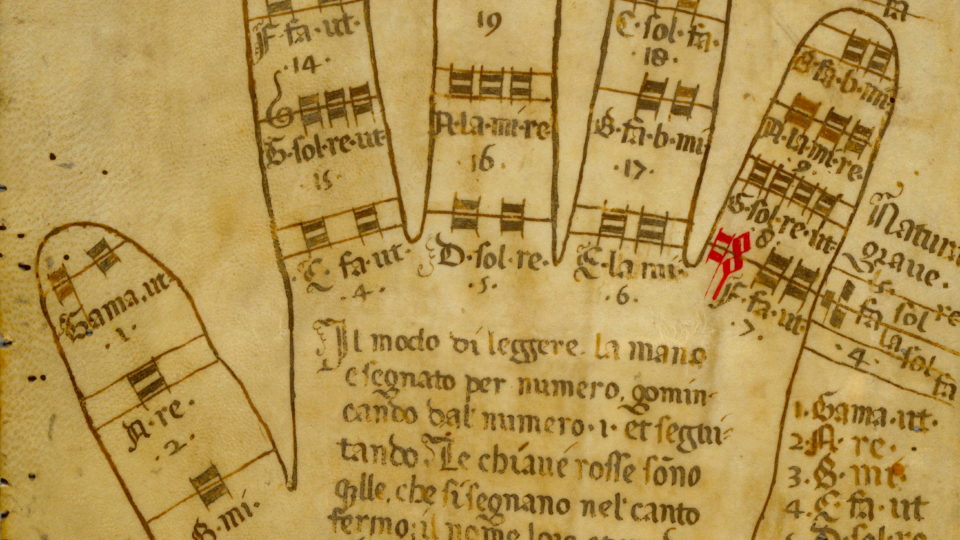 F·fa·ut·
·14·
G·sol·re·ut·
·15·
C·fa·ut·
·4·
19
A·la·mi·re·
·16·
D·sol·re·
·5·
C·sol·fa·
·18·
B·fa·b·mi·
·17·
E·la·mi·
·6·
B·fa·b·mi·
A·la·mi·re·
·9·
G·sol·re·ut·
·8·
F·fa·ut·
·7·
Gama·ut·
·1·
A·re·
·2·
B·mi·
fa
Natura
graue·
sol re
fa sol
la sol
fa
·4·
Il modo di leggere la mano
e segnato per numero, gomin-
cando dal numero·1· et segui-
tando. Le chiaue rosse sōno
qlle, che si segnano nel canto
fermo; il nome loro
1·Gama·ut·
2·A·re·
3·B·mi·
4·C fa·ut
5·D·sol·re